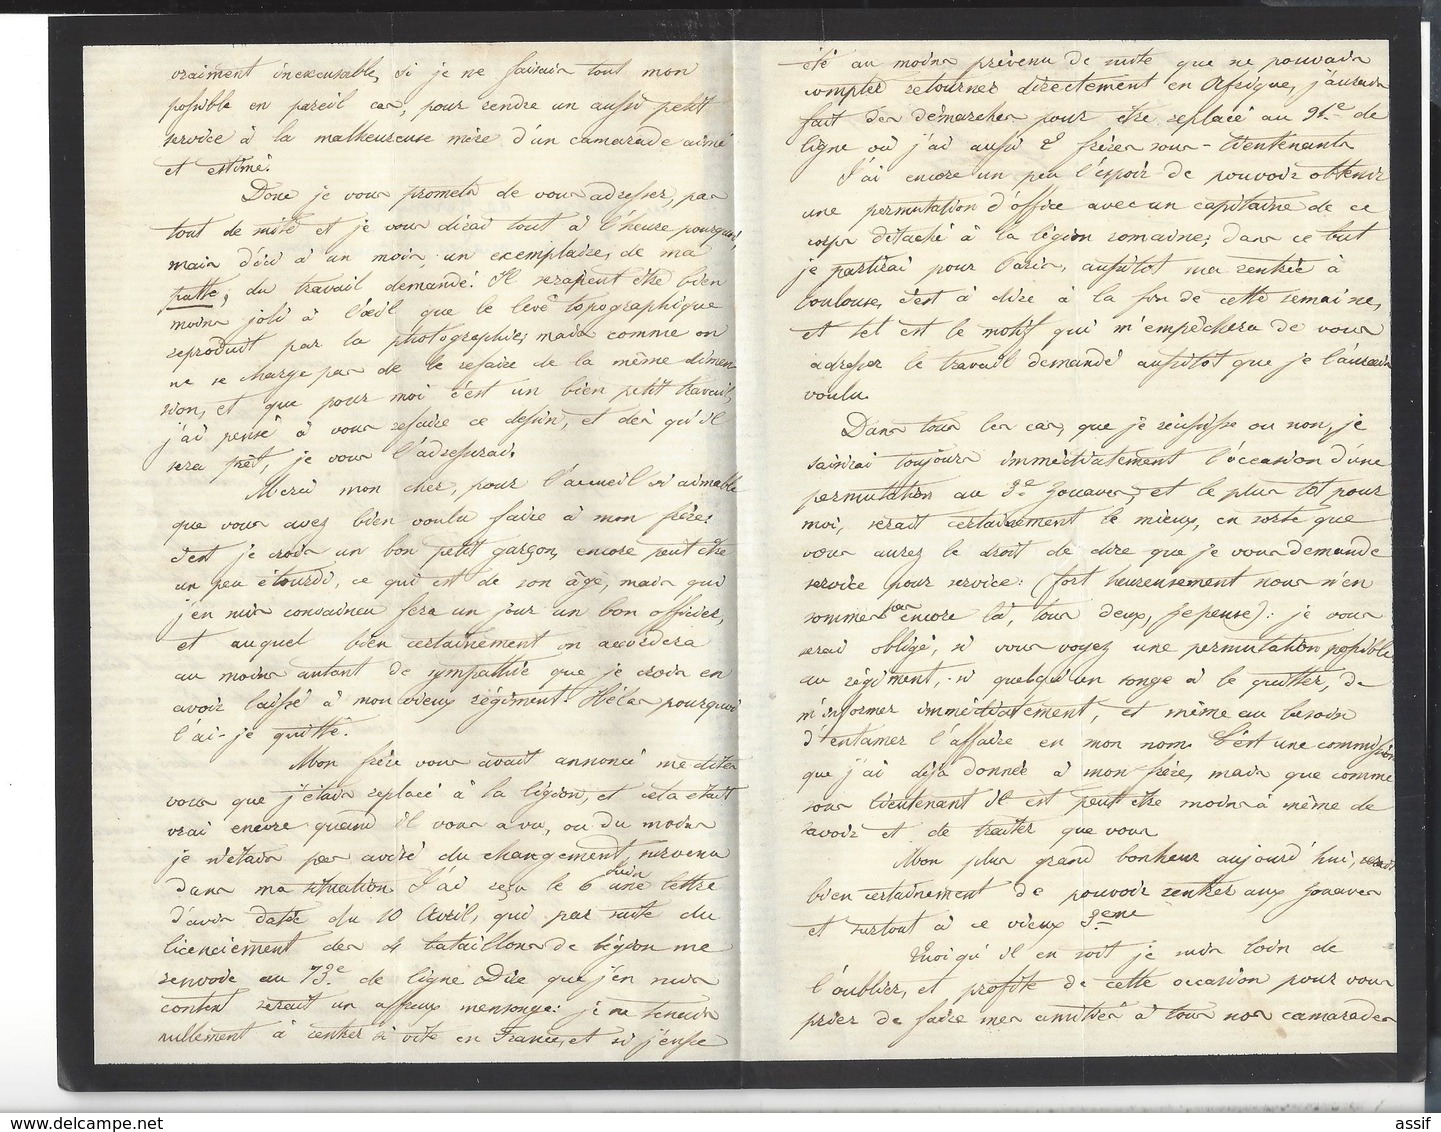 vraiment inexcusable, si je ne faisais tout mon
possible en pareil cas, pour rendre un aussi petit
service à la malheureuse mère d'un camarade aimé
et estimé.
Donc je vous promets de vous adresser, pas
tout de suite et je vous dirai tout à l'heure pourquoi,
mais d'ici à un mois, un exemplaire, de ma
patte, du travail demandé. Il sera peut être bien
moins joli à l'œil que le levé topographique
reproduit par la photographie; mais comme on
ne se charge pas de le refaire de la même dimen
sion, et que pour moi c'est un bien petit travail,
j'ai pensé à vous refaire ce dessin, et dès qu'il
sera prêt, je vous l'adresserai.
Merci mon cher, pour l'accueil si aimable
que vous avez bien voulu faire à mon frère:
c'est je crois un bon petit garçon, encore peut être
un peu étourdi, ce qui est de son âge, mais qui
j'en suis convaincu fera un jour un bon officier,
et auquel bien certainement on accordera
au moins autant de sympathie que je crois en
avoir laissé à mon vieux régiment. Hélas pourquoi
l'ai-je quitté.
Mon frère vous avait annoncé me dites
vous que j'étais replacé à la légion, et cela était
vrai encore quand il vous a vu, ou du moins
je n'étais pas avisé du changement survenu
dans ma situation. J'ai reçu le 6 juin une lettre
d'avis datée du 10 Avril, qui par suite du
licenciement des 4 bataillons de légion me
renvoie au 73e de ligne. Dire que j'en suis
content serait un affreux mensonge: je ne tenais
nullement à rentrer si vite en France, et si j'eusse
été au moins prévenu de suite que ne pouvais
compter retourner directement en Afrique, j'aurais
fait des démarches pour être replacé au 91e de
ligne où j'ai aussi 2 frères sous-lieutenants
J'ai encore un peu l'espoir de pouvoir obtenir
une permutation d'office avec un capitaine de ce
corps détaché à la légion romaine; dans ce but
je partirai pour Paris, aussitot ma rentrée à
Toulouse, c'est à dire à la fin de cette semaine,
et tel est le motif qui m'empêchera de vous
adresser le travail demandé aussitot que je l'aurais
voulu.
Dans tous les cas, que je réussisse ou non, je
saisirai toujours immédiatement l'occasion d'une
permutation au 3e zouaves, et le plus tot pour
moi, serait certainement le mieux, en sorte que
vous aurez le droit de dire que je vous demande
service pour service: (fort heureusement nous n'en
sommes pas encore là, tous deux, je pense): je vous
serai obligé, si vous voyez une permutation possible
au régiment, si quelqu'un songe à le quitter, de
m'informer immédiatement, et même au besoin
d'entamer l'affaire en mon nom. C'est une commission
que j'ai déjà donnée à mon frère, mais que comme
sous lieutenant il est peut être moins à même de
savoir et de traiter que vous
Mon plus grand bonheur aujourd'hui, serait
bien certainement de pouvoir rentrer aux zouaves
et surtout à ce vieux 3eme
Quoi qu'il en soit je suis loin de
l'oublier, et profite de cette occasion pour vous
prier de faire mes amitiés à tous nos camarades
www.delcampe.net
assif